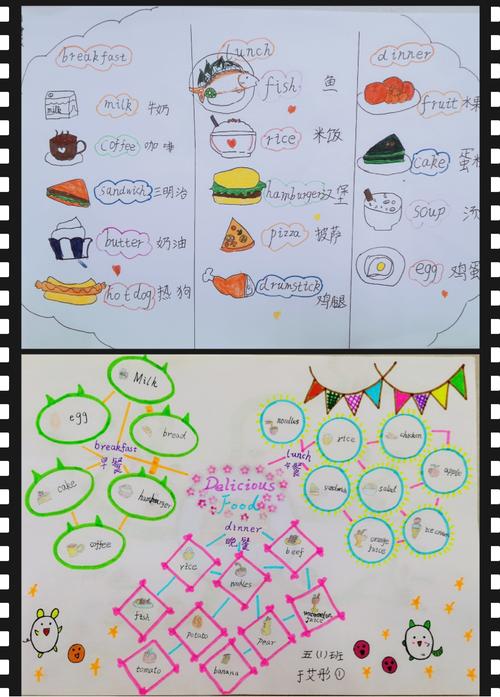 breakfast
lunch
dinner
milk
milk 牛奶
coffee 咖啡
sandwich 三明治
butter 奶油
hot dog 热狗
fish 鱼
rice 米饭
hamburger 汉堡
pizza 披萨
drumstick 鸡腿
fruit 水果
cake 蛋糕
soup 汤
egg 鸡蛋
Milk
egg
bread
breakfast
早餐
cake
hamburger
coffee
Delicious
Food
noodles
rice
chicken
lunch
午餐
apple
salad
orange
juice
ice cream
dinner
晚餐
rice
beef
noodles
fish
potato
pear
watermelon
juice
tomato
banana
五(1)班
于艾彤①